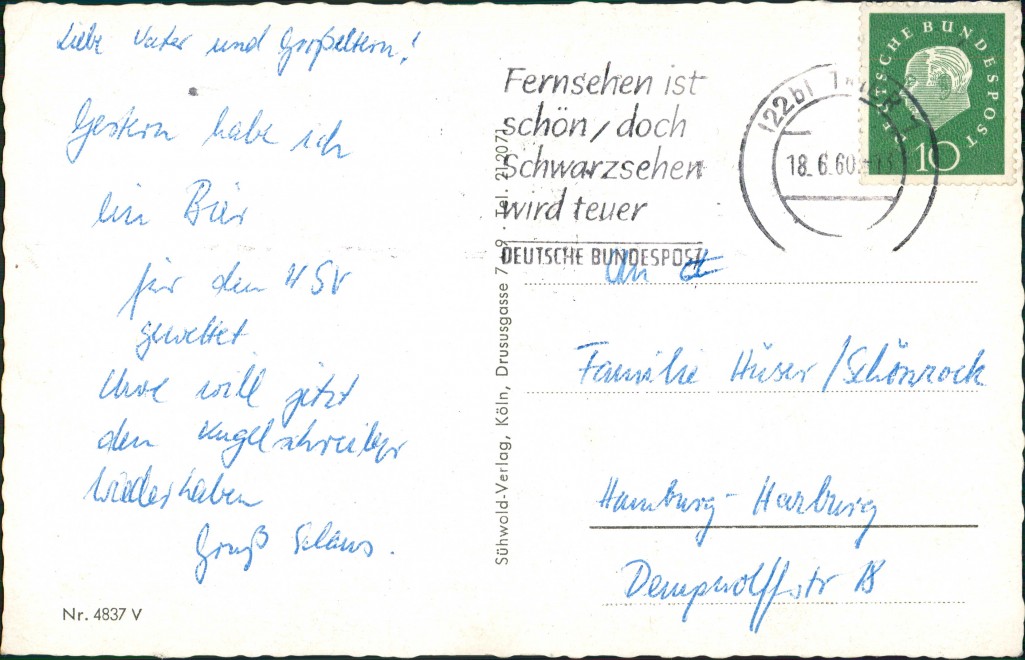 Liebe Vater und Großeltern!
Gestern habe ich
ein Bier
für den HSV
gewettet
Uwe will jetzt
den Kugelschreiber
wiederhaben
Gruß Klaus.
Nr. 4837 V
Sühwold-Verlag, Köln, Drususgasse 7-9 · Tel. 212077
Fernsehen ist
schön, doch
Schwarzsehen
wird teuer
DEUTSCHE BUNDESPOST
(22b)
18.6.60
DEUTSCHE BUNDESPOST
10
An
Familie Hüser/Schönrock
Hamburg-Harburg
Dempwolffstr 18